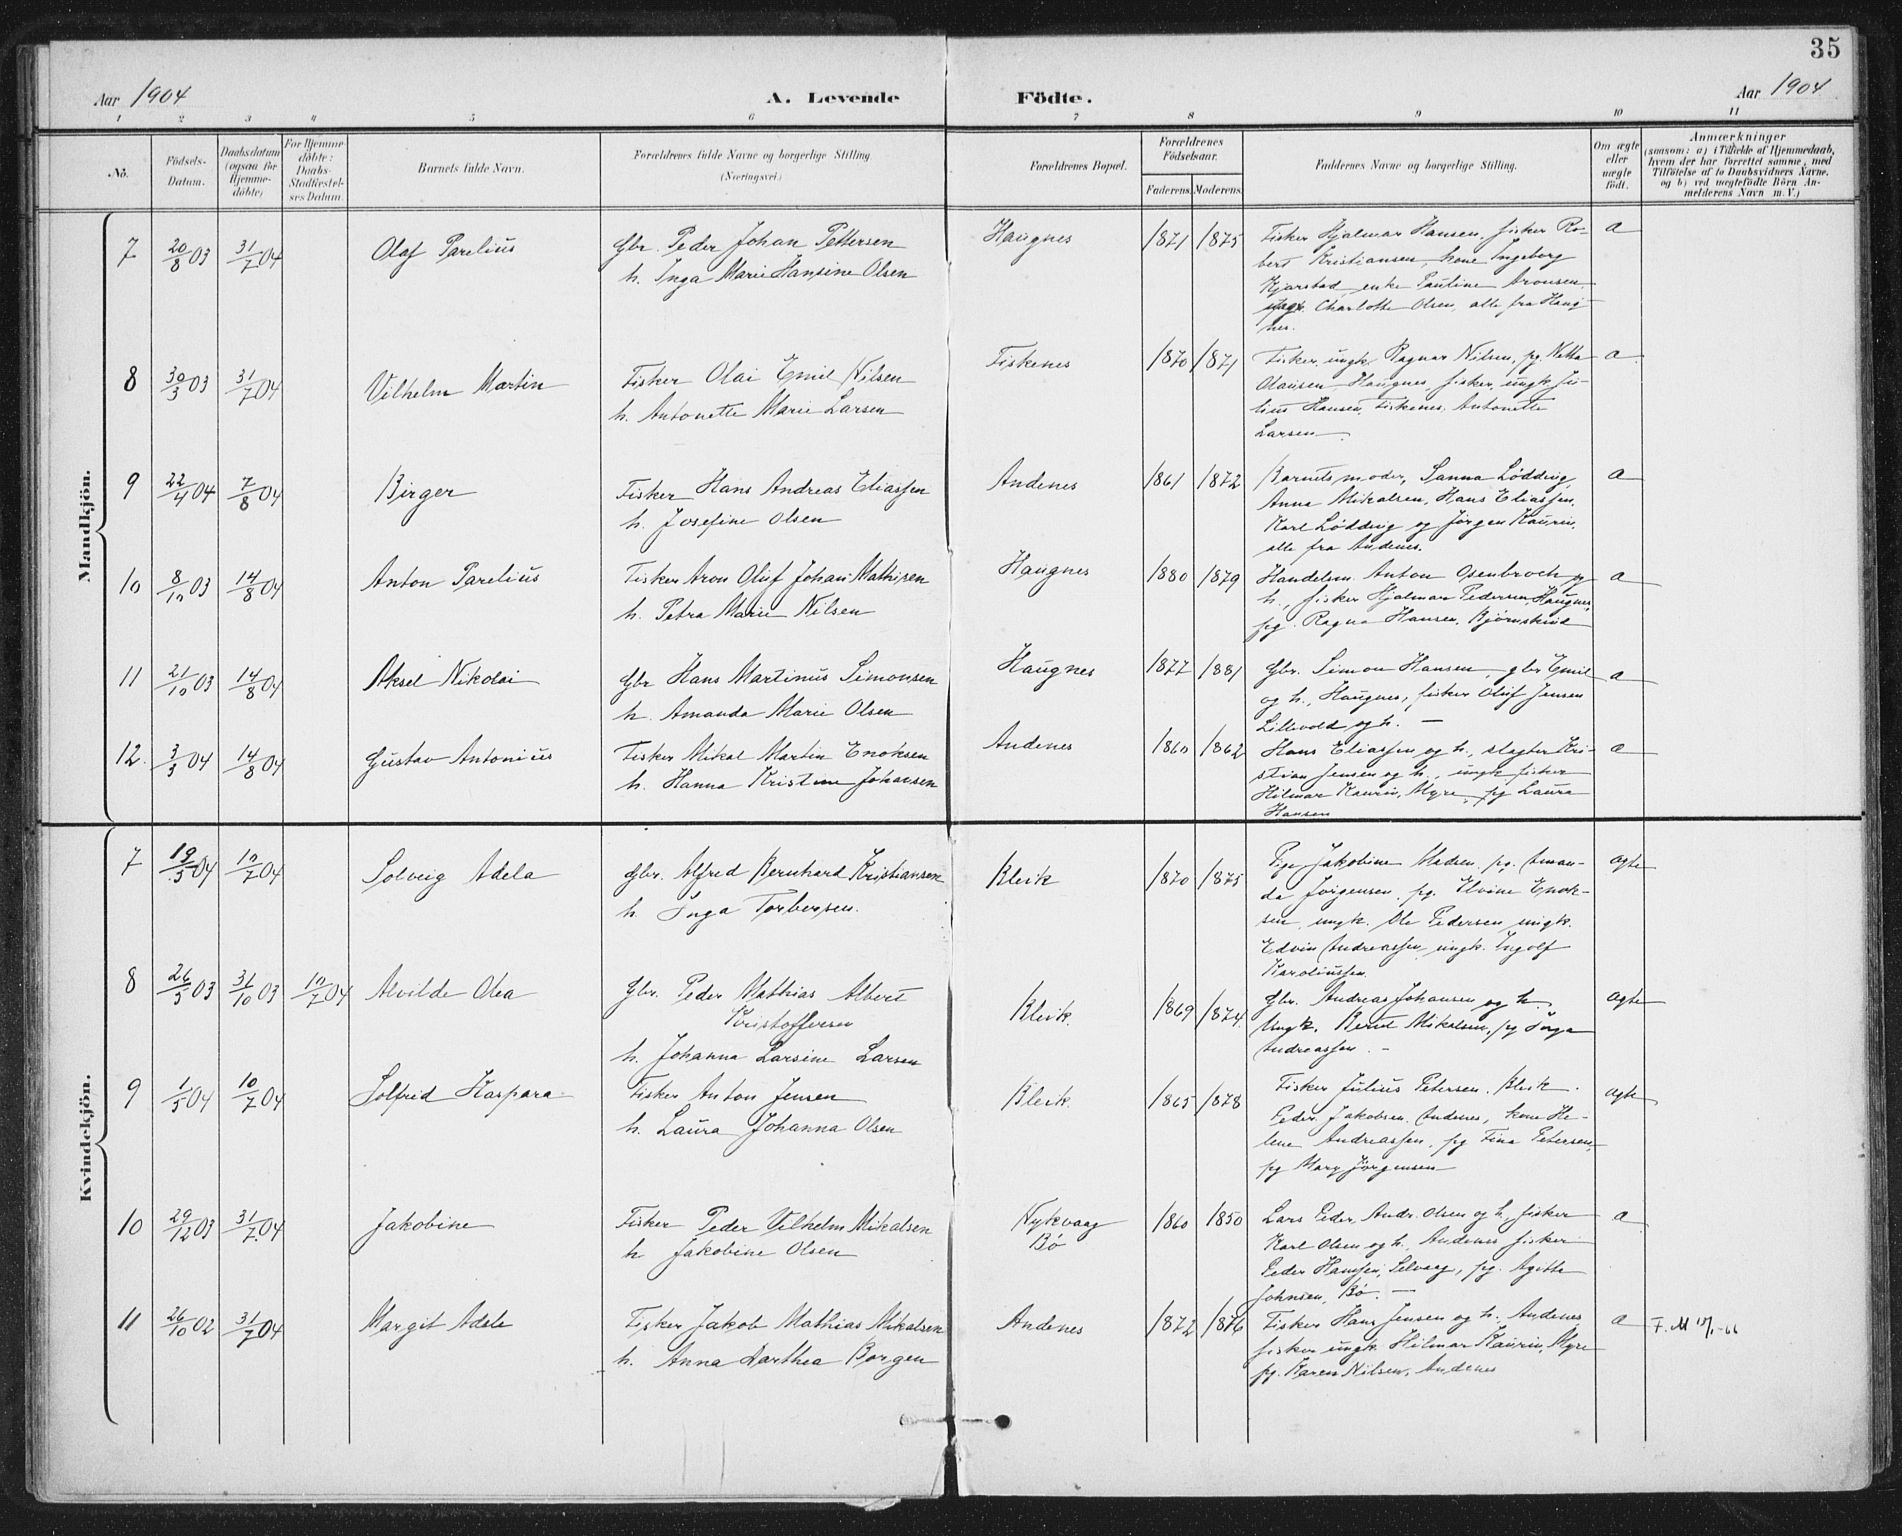 35
Aar 1904
A. Levende Födte.
Aar 1904
1 2 3 4 5 6 7 8 9 10 11
No.
Födsels-Datum.
Daabsdatum (ogsaa for Hjemmedöbte)
For Hjemmedöbte: Daabs-Stadfæstelses Datum.
Barnets fulde Navn.
Forældrenes fulde Navne og borgerlige Stilling (Næringsvei.)
Forældrenes Bopæl.
Forældrenes Födselsaar.
Faderens. Moderens.
Faddernes Navne og borgerlige Stilling.
Om ægte eller uægte födt.
Anmærkninger
(saasom: a) i Tilfælde af Hjemmedaab,
hvem der har forrettet samme, med
Tilföielse af to Daabsvidners Navne,
og b) ved uægtefödte Börn An-
melderens Navn m. V.)
Mandkjön.
7 20/8 03 31/7 04 Olaf Parelius
Gbr. Peder Johan Pettersen
h. Inga Marie Hansine Olsen
Haugnes 1871 1875
Fisker Hjalmar Hansen, fisker Ro-
bert Kristiansen, kone Ingeborg
Kjærstad, enke Pauline Aronsen,
Charlotte Olsen, alle fra Haug
nes.
a
8 30/3 03 31/7 04 Vilhelm Martin
Fisker Olai Emil Nilsen
h. Antonette Marie Larsen
Fiskenes 1870 1871
Fisker, ungk. Ragnar Nilsen, pg. Netta
Olaisen, Haugnes, fisker, ungk. Ju-
lius Hansen, Fiskenes, Antonette
Larsen
a
9 22/4 04 7/8 04 Birger
Fisker Hans Andreas Eliassen
h. Josefine Olsen
Andenes 1861 1872
Barnets moder, Sanna Løddvig,
Anna Mikalsen, Hans Eliassen,
Karl Løddvig og Jørgen Kaurin,
alle fra Andenes.
a
10 8/10 03 14/8 04 Anton Parelius
Fisker Aron Oluf Johan Mathisen
h. Petra Marie Nilsen
Haugnes 1880 1879
Handelsm. Anton Osenbroch og
h., fisker Hjalmar Pedersen, Haugnes,
pg. Ragna Hansen, Bjørnskind
a
11 21/10 03 14/8 04 Aksel Nikolai
Gbr Hans Martinus Simonsen
h. Amanda Marie Olsen
Haugnes 1877 1881
Gbr. Simon Hansen, gbr Emil
og h., Haugnes, fisker Oluf Jensen
Lillevold og h. —
a
12. 3/3 04 14/8 04 Gustav Antonius
Fisker Mikal Martin Enoksen
h. Hanna Kristine Johansen
Andenes 1860 1862
Hans Eliassen og h., slagter Kri-
stian Jensen og h., ungk. fisker
Hilmar Kaurin, Myre, pg Laura
Hansen
a
Kvindekjön.
7 19/5 04 10/7 04 Solveig Adela
Gbr. Alfred Bernhard Kristiansen
h. Inga Torbersen.
Bleik 1870 1875
Pige Jakobine Madsen, pg. Aman-
da Jørgensen, pg. Elvine Enok-
sen, ungk. Ole Pedersen, ungk.
Edvin Andreassen, ungk. Ingolf
Karoliussen.
ægte
8 26/5 03 31/10 03 10/7 04 Alvilde Olea
Gbr. Peder Mathias Albert
Kristoffersen
h. Johanna Larsine Larsen
Bleik. 1869 1874
Gbr. Andreas Johansen og h.
Ungk. Bernt Mikalsen, pg Inga
Andreassen. -
ægte
9 1/5 04 10/7 04 Solfrid Kaspara
Fisker Anton Jensen
h. Laura Johanna Olsen
Bleik. 1865 1878
Fisker Julius Petersen. Bleik.
Peder Jakobsen Andenes, kone He-
lene Andreassen, pg Tina Petersen,
pg Mary Jørgensen
ægte
10 29/12 03 31/7 04 Jakobine
Fisker Peder Vilhelm Mikalsen
h Jakobine Olsen
Nykvaag
Bø
1860 1850
Lars Peder Andr. Olsen og h, fisker
Karl Olsen og h., Andenes fisker
Peder Hansen, Selvaag, pg. Agethe
Johnsen, Bø. -
a
11 26/10 02 31/7 04 Margit Adele
Fisker Jakob Mathias Mikalsen
h. Anna Darthea Borgen
Andenes 1872 1876
Fisker Hans Jensen og h. Andenes,
fisker ungk. Hilmar Kaurin, Myre
pg. Karen Nilsen, Andenes
a
F. M